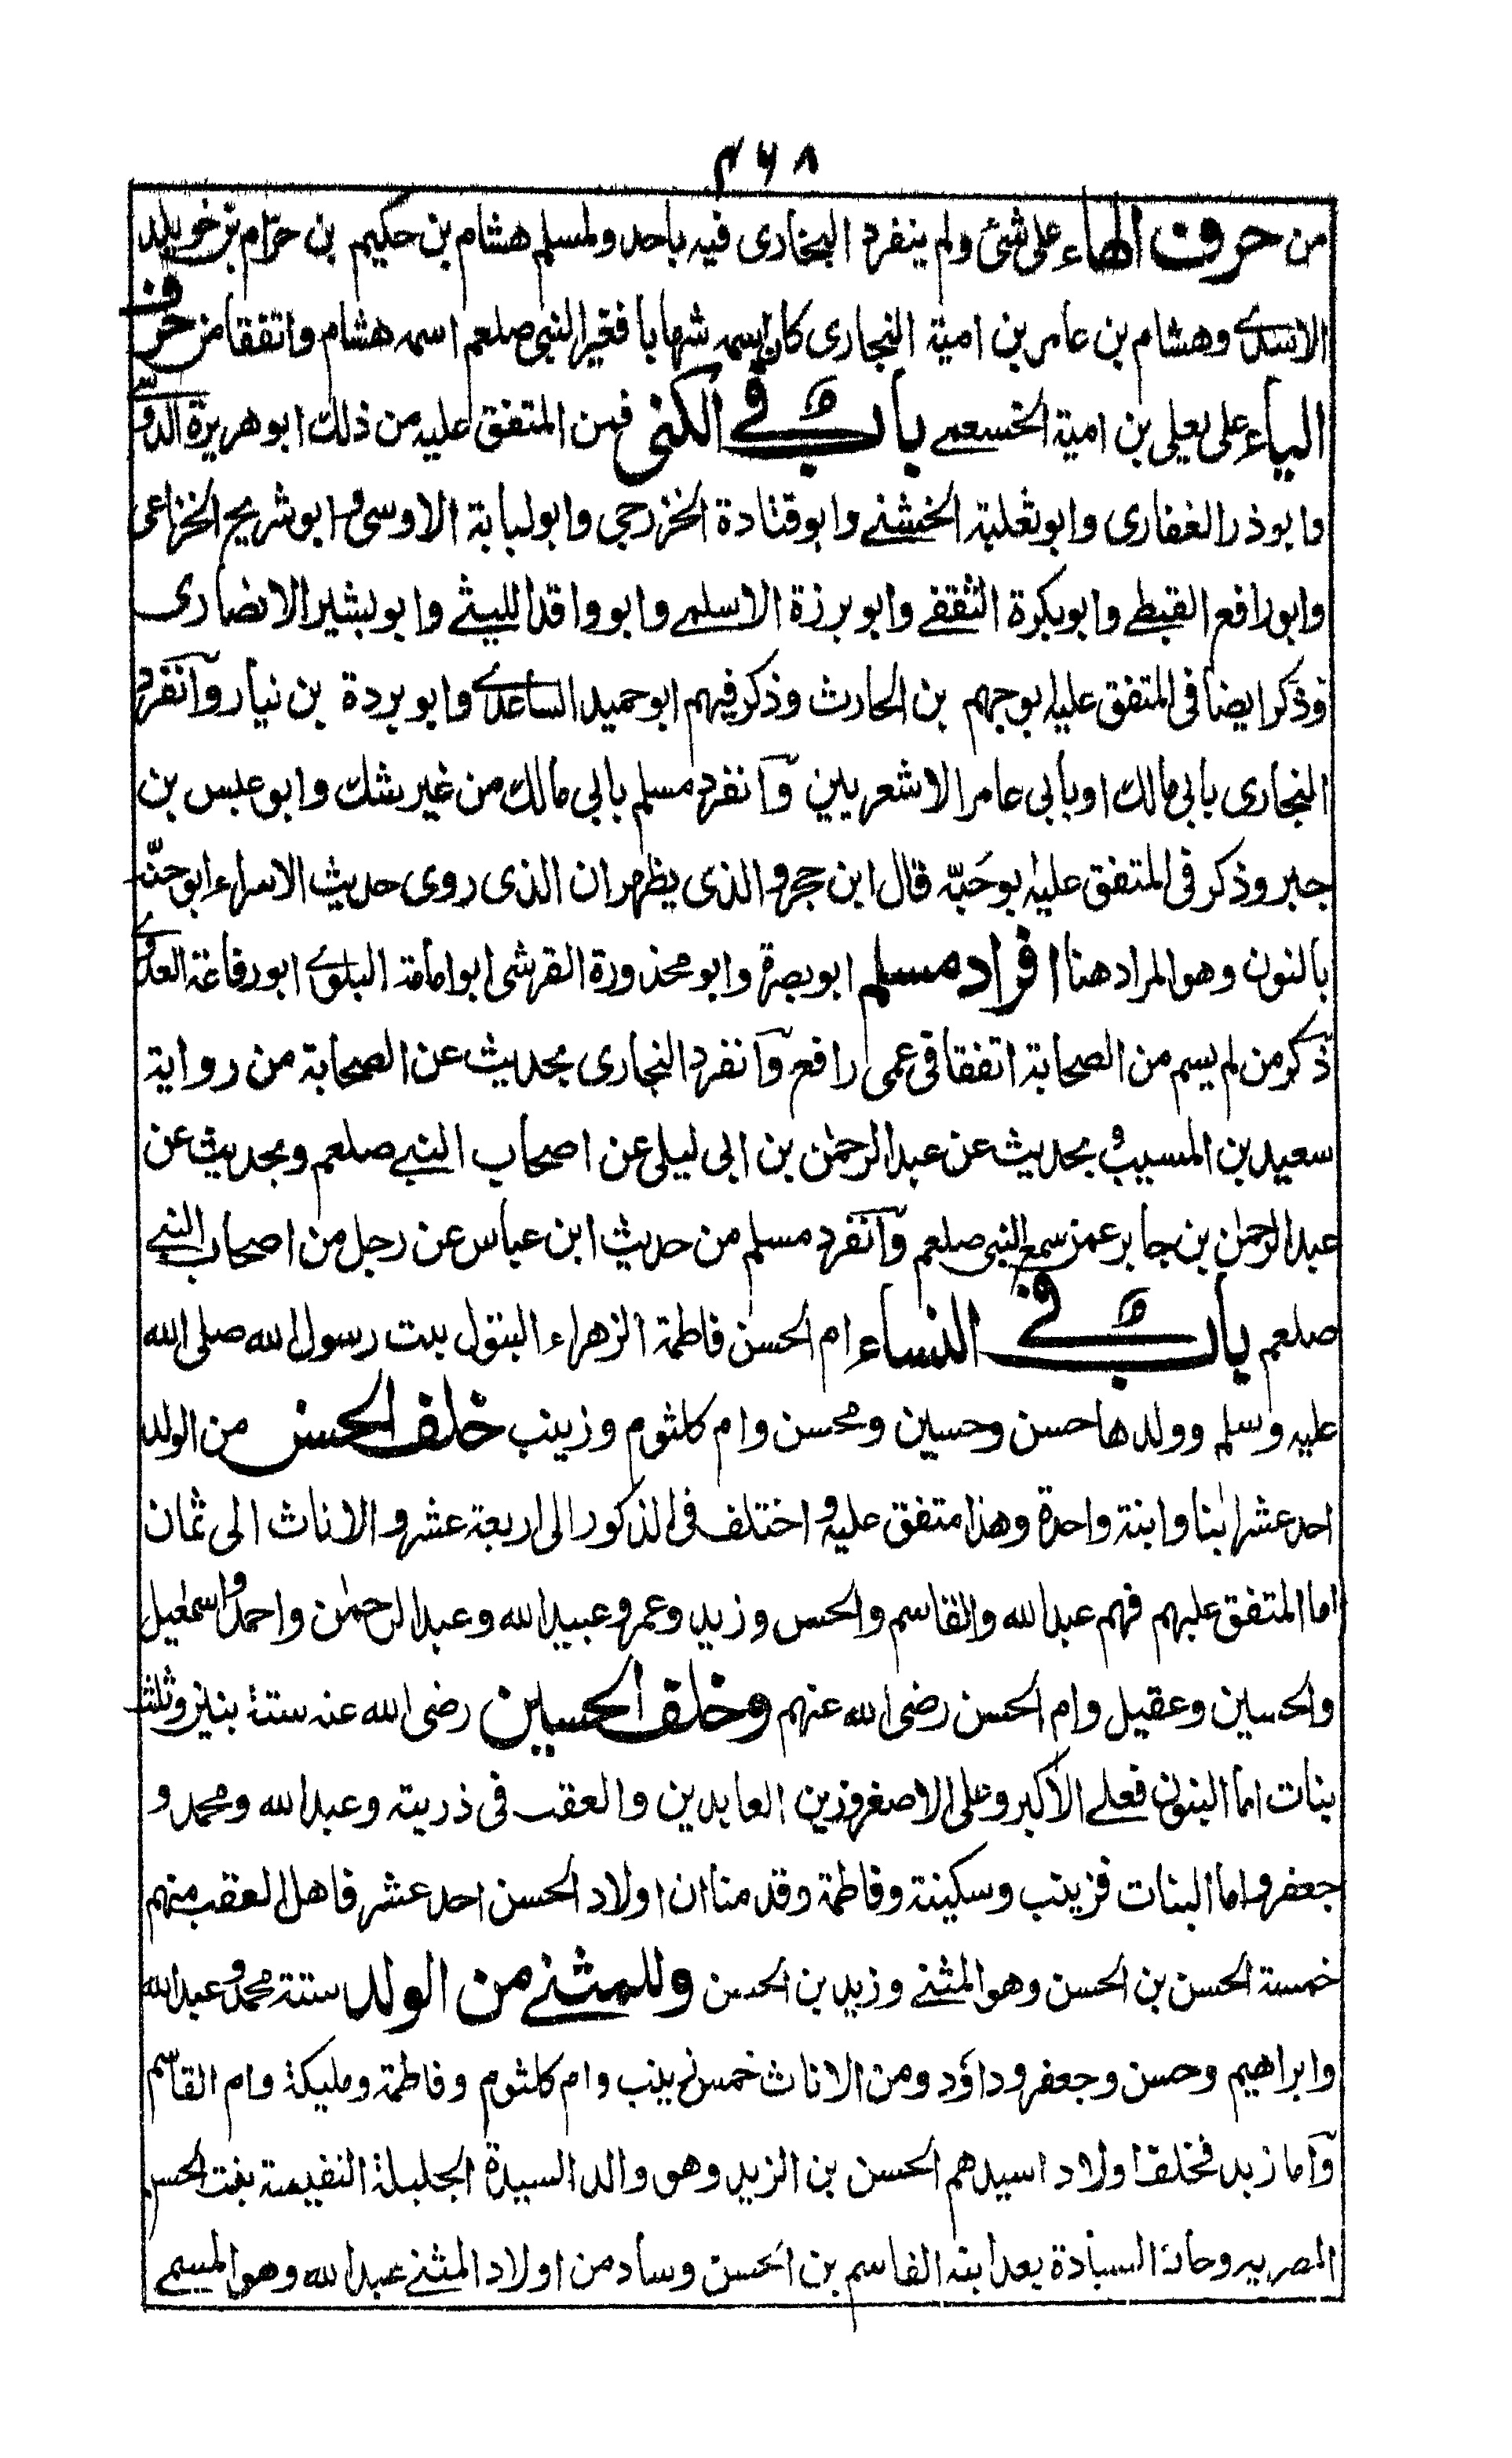 ۴۶۸
من حرف الهاء على شئ ولم ينفرد البخارى فيه باحد ولمسلم هشام بن حكيم بن حزام بن خويلد
الاسدى وهشام بن عامر بن امية النجارى كان اسمه شهابا فغير النبى صلعم اسمه هشام واتفقا من حرف
الياء على يعلى بن امية الخسعمى باب فى الكنى فمن المتفق عليه من ذلك ابو هريرة الدوسى
وابوذر الغفارى وابو ثعلبة الخشنى وابو قتادة الخزرجى وابو لبابة الاوسى وابو شريح الخزاعى
وابو رافع القبطى وابو بكرة الثقفى وابو برزة الاسلمى وابو واقد الليثى وابو بشير الانصارى
وذكر ايضا فى المتفق عليه ابو جهم بن الحارث وذكر فيهم ابو حميد الساعدى وابو بردة بن نيار وآنفرد
البخارى بابى مالك او بابى عامر الاشعريين وآنفرد مسلم بابى مالك من غير شك وابو عبس بن
جبر وذكر فى المتفق عليه ابو حَبّه قال ابن حجر والذى يظهر ان الذى روى حديث الاسراء ابو حنّه
بالنون وهو المراد هنا افراد مسلم ابو بصرة وابو محذورة القرشى ابو امامة البلوى ابو رفاعة العدوى
ذكر من لم يسم من الصحابة اتفقا فى عمى رافع وآنفرد البخارى بحديث عن الصحابة من رواية
سعيد بن المسيب وبحديث عن عبد الرحمٰن بن ابى ليلى عن اصحاب النبى صلعم وبحديث عن
عبد الرحمٰن بن جابر عمن سمع النبى صلعم وآنفرد مسلم من حديث ابن عباس عن رجل من اصحاب النبى
صلعم باب فى النساء ام الحسن فاطمة الزهراء البتول بنت رسول الله صلى الله
عليه وسلم وولدها حسن وحسين ومحسن وام كلثوم وزينب خلف الحسن من الولد
احد عشر ابنا وابنة واحدة وهذا متفق عليه واختلف فى الذكور الى اربعة عشر والاناث الى ثمان
اما المتفق عليهم فهم عبد الله والقاسم والحسن وزيد وعمرو عبيد الله وعبد الرحمٰن واحمد واسمعيل
والحسين وعقيل وام الحسن رضى الله عنهم وخلف الحسين رضى الله عنه ستة بنين وثلث
بنات اما البنون فعلى الاكبر وعلى الاصغر وزين العابدين والعقب فى ذريته وعبد الله ومحمد و
جعفر واما البنات فزينب وسكينة وفاطمة وقد منا ان اولاد الحسن احد عشر فاهل العقب منهم
خمسة الحسن بن الحسن وهو المثنى وزيد بن الحسن وللمثنى من الولد ستة محمد وعبد الله
وابراهيم وحسن وجعفر وداؤد ومن الاناث خمس زينب وام كلثوم وفاطمة ومليكة وام القاسم
وآما زيد فخلف اولاد اسيدهم الحسن بن الزيد وهو والد السيدة الجليلة النفيسة بنت الحسن
المصريه السيادة بعد ابنه القاسم بن الحسن وساد من اولاد المثنى عبد الله وهو المسمى